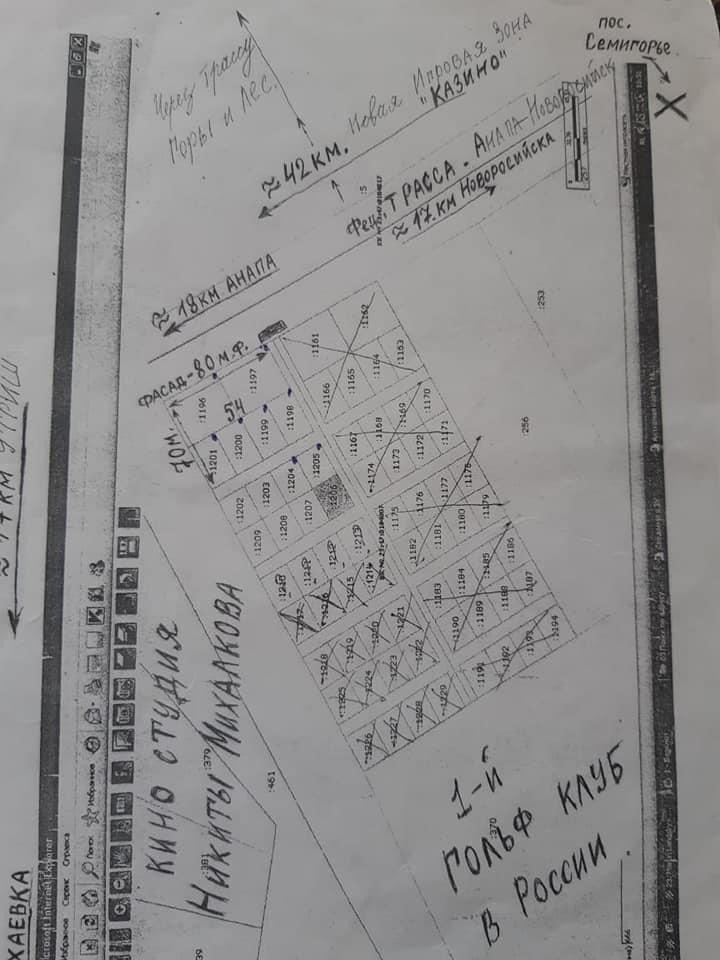 пос.
Семигорье
X
Через Трассу
Горы и Лес.
≈ 42 км. Новая Игровая Зона
"КАЗИНО"
:5
Фед. ТРАССА - Анапа-Новоросийск
≈ 17 км Новоросийска
≈ 18 км АНАПА
ФАСАД - 80 м.ф.
70 м.
54
:1196
:1197
:1201
:1200
:1199
:1198
:1202
:1203
:1204
:1205
:1209
:1208
:1207
:1206
:1161
:1162
:1166
:1165
:1164
:1163
:1167
:1168
:1169
:1170
:1174
:1173
:1172
:1171
:1175
:1176
:1177
:1178
:1182
:1181
:1180
:1179
:1183
:1184
:1185
:1186
:1190
:1189
:1188
:1187
:1191
:1192
:1193
:1194
:1213
:1214
:1215
:1216
:1217
:1218
:1219
:1220
:1221
:1225
:1224
:1223
:1222
:1226
:1227
:1228
:1229
:253
:256
:370
:379
:381
:461
39
КИНО СТУДИЯ
Никиты Михалкова
1-й
Гольф клуб
в России.
≈ 17 км Утриш
ХАЕВКА
Microsoft Internet Explorer
Избранное Сервис Справка
Поиск
Избранное